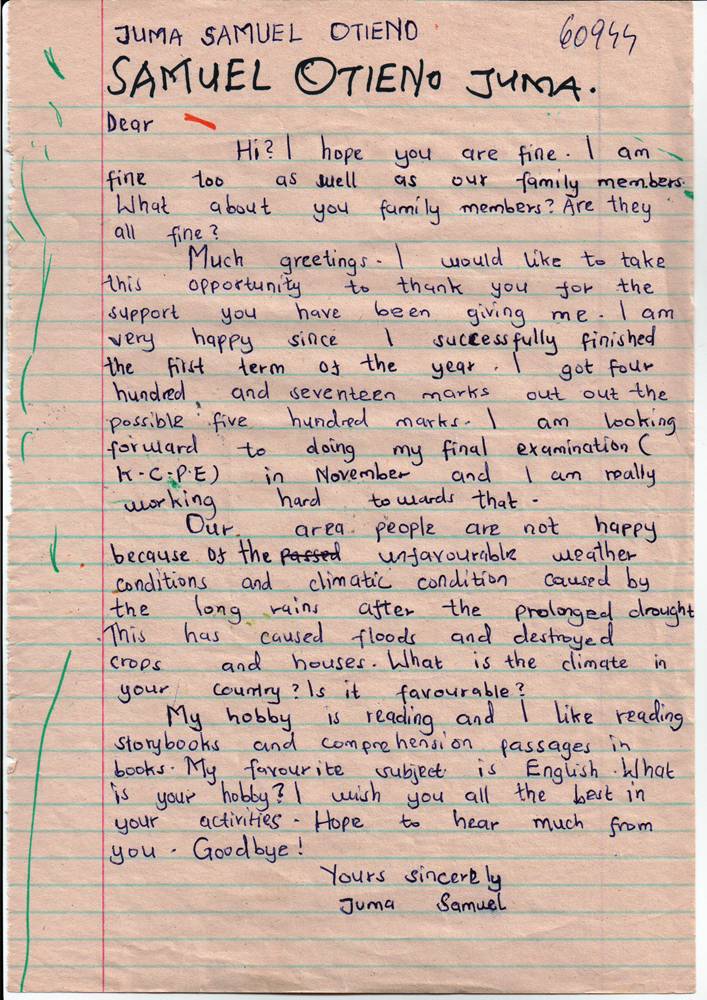 JUMA SAMUEL OTIENO 60944
SAMUEL OTIENO JUMA.
Dear
Hi? I hope you are fine. I am
fine too as well as our family members.
What about you family members? Are they
all fine?
Much greetings. I would like to take
this opportunity to thank you for the
support you have been giving me. I am
very happy since I successfully finished
the first term of the year. I got four
hundred, and seventeen marks out out the
possible five hundred marks. I am looking
forward to doing my final examination (
K.C.P.E) in November and I am really
working hard towards that.
Our area people are not happy
because of the passed unfavourable weather
conditions and climatic condition caused by
the long rains after the prolonged drought
This has caused floods and destroyed
crops and houses. What is the climate in
your country? Is it favourable?
My hobby is reading and I like reading
storybooks and comprehension passages in
books. My favourite subject is English. What
is your hobby? I wish you all the best in
your activities. Hope to hear much from
you. Goodbye!
Yours sincerely
Juma Samuel